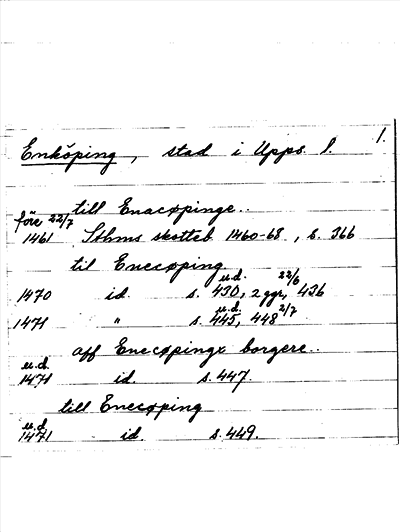 1.
Enköping, stad i Upps. l.
till Enacøpinge..
före 22/7
1461 Sthms skotteb 1460-68, s. 366
til Enecøping
u.d. 22/6
1470 id. s. 430, 2 ggr, 436
u.d. 2/7
1471 " s. 445, 448
aff Enecøpingx borgere..
u.d.
1471 id. s. 447.
till Enecøping
u.d.
1471 id. s. 449.